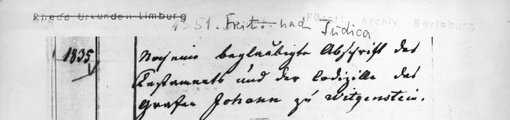 Rheda Urkunden Limburg
1351. Freit. nad Judica
Fürstl. Archiv Berleburg
1835
Noch eine beglaubigte Abschrift des
Testaments und der Codizille des
Grafen Johann zu Witgenstein.